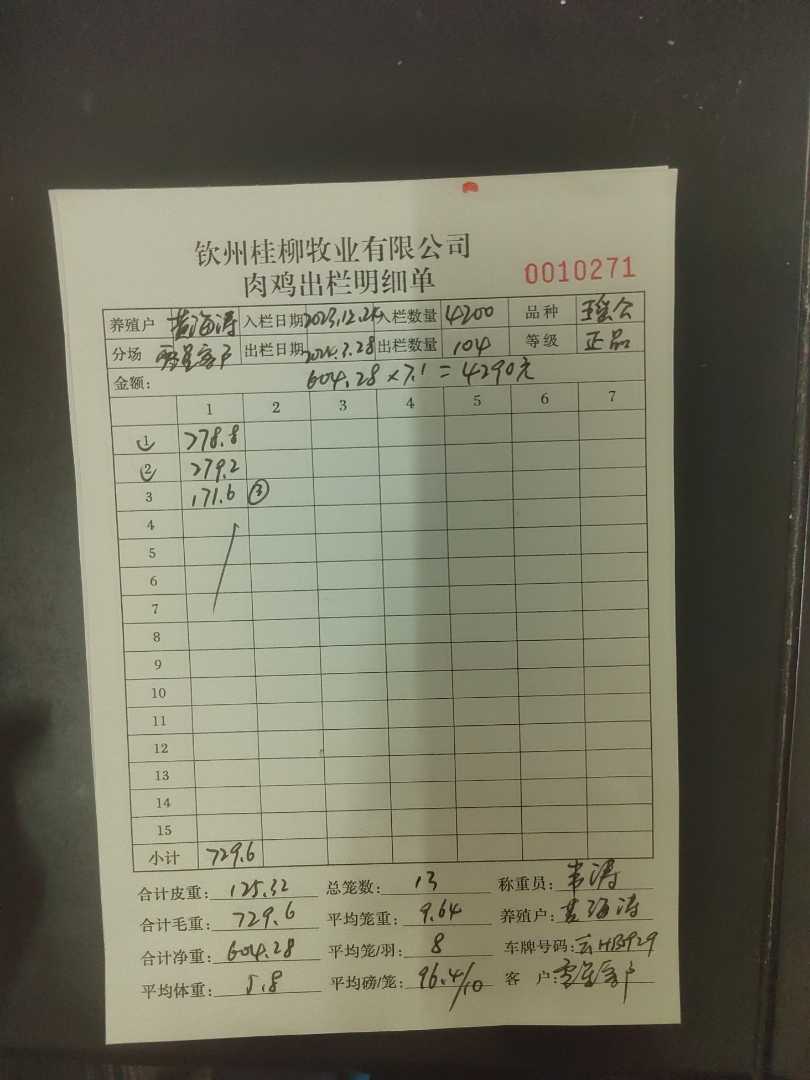 钦州桂柳牧业有限公司
肉鸡出栏明细单
0010271
养殖户 黄海涛 入栏日期 2023.12.24 入栏数量 4200 品种
分场 零星客户 出栏日期 2024.3.28 出栏数量 104 等级 正品
金额: 604.28×7.1=4290元
1 2 3 4 5 6 7
1 278.8
2 279.2
3 171.6 ③
4
5
6
7
8
9
10
11
12
13
14
15
小计 729.6
合计皮重: 125.32 总笼数: 13 称重员:
合计毛重: 729.6 平均笼重: 9.64 养殖户: 黄海涛
合计净重: 604.28 平均笼/羽: 8 车牌号码: 云HB929
平均体重: 5.8 平均磅/笼: 96.4/10 客户: 零星客户